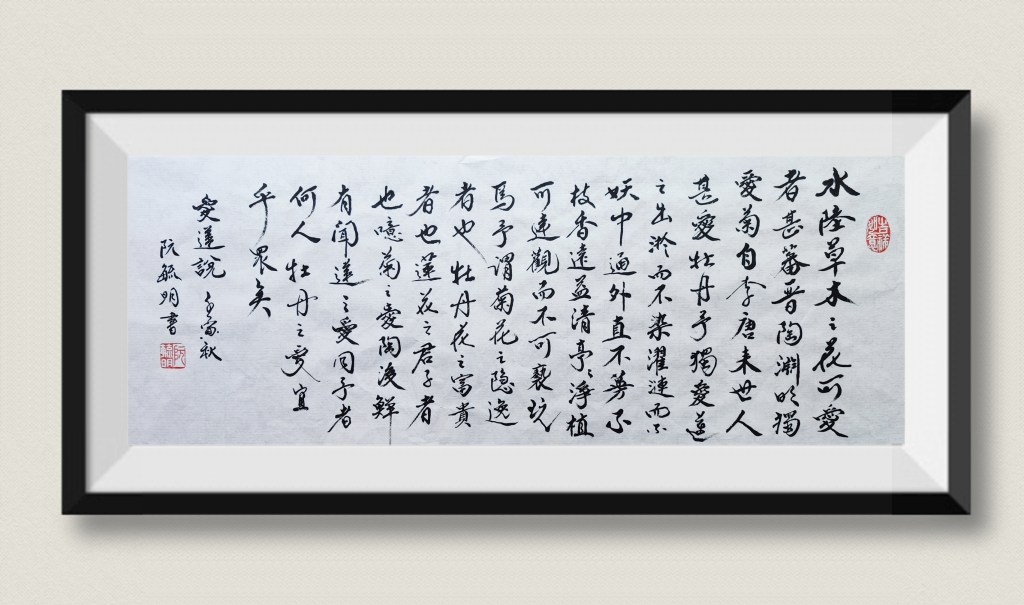 水陸草木之花可愛
者甚蕃晉陶淵明獨
愛菊自李唐來世人
甚愛牡丹予獨愛蓮
之出淤而不染濯漣而不
妖中通外直不蔓不
枝香遠益清亭々淨植
可遠觀而不可褻玩
焉予謂菊花之隱逸
者也牡丹花之富貴
者也蓮花之君子者
也噫菊之愛陶後鮮
有聞蓮之愛同予者
何人牡丹之愛宜
乎眾矣
愛蓮說 壬寅秋
阮毓明書